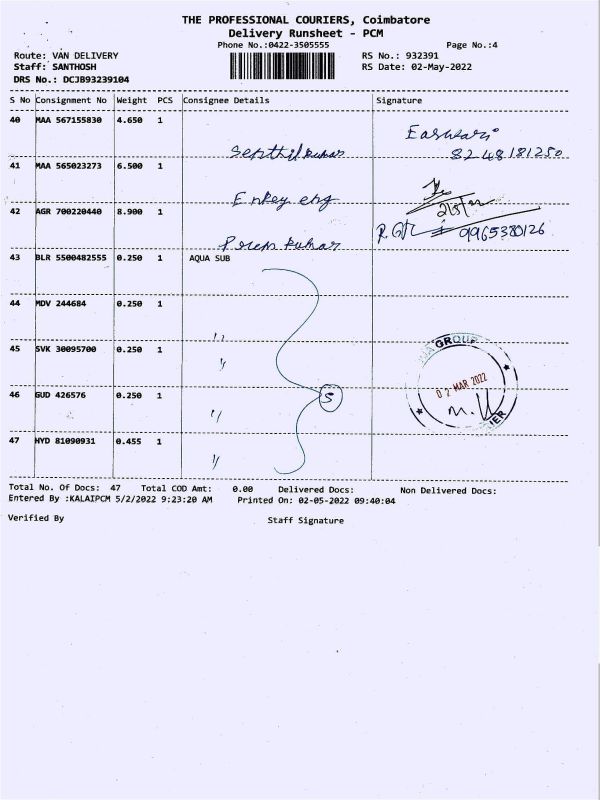 THE PROFESSIONAL COURIERS, Coimbatore
Delivery Runsheet - PCM
Phone No.:0422-3505555 Page No.:4
Route: VAN DELIVERY RS No.: 932391
Staff: SANTHOSH RS Date: 02-May-2022
DRS No.: DCJB93239104
S No Consignment No Weight PCS Consignee Details Signature
40 MAA 567155830 4.650 1
Senthil kumar Easwari
8248181250
41 MAA 565023273 6.500 1
Enkey eng 2/5/22
42 AGR 700220440 8.900 1
Prem kumar 9965380126
43 BLR 5500482555 0.250 1 AQUA SUB
44 MDV 244684 0.250 1
45 SVK 30095700 0.250 1
46 GUD 426576 0.250 1
5
GROUP
02 MAR 2022
47 HYD 81090931 0.455 1
Total No. Of Docs: 47 Total COD Amt: 0.00 Delivered Docs: Non Delivered Docs:
Entered By :KALAIPCM 5/2/2022 9:23:20 AM Printed On: 02-05-2022 09:40:04
Verified By Staff Signature